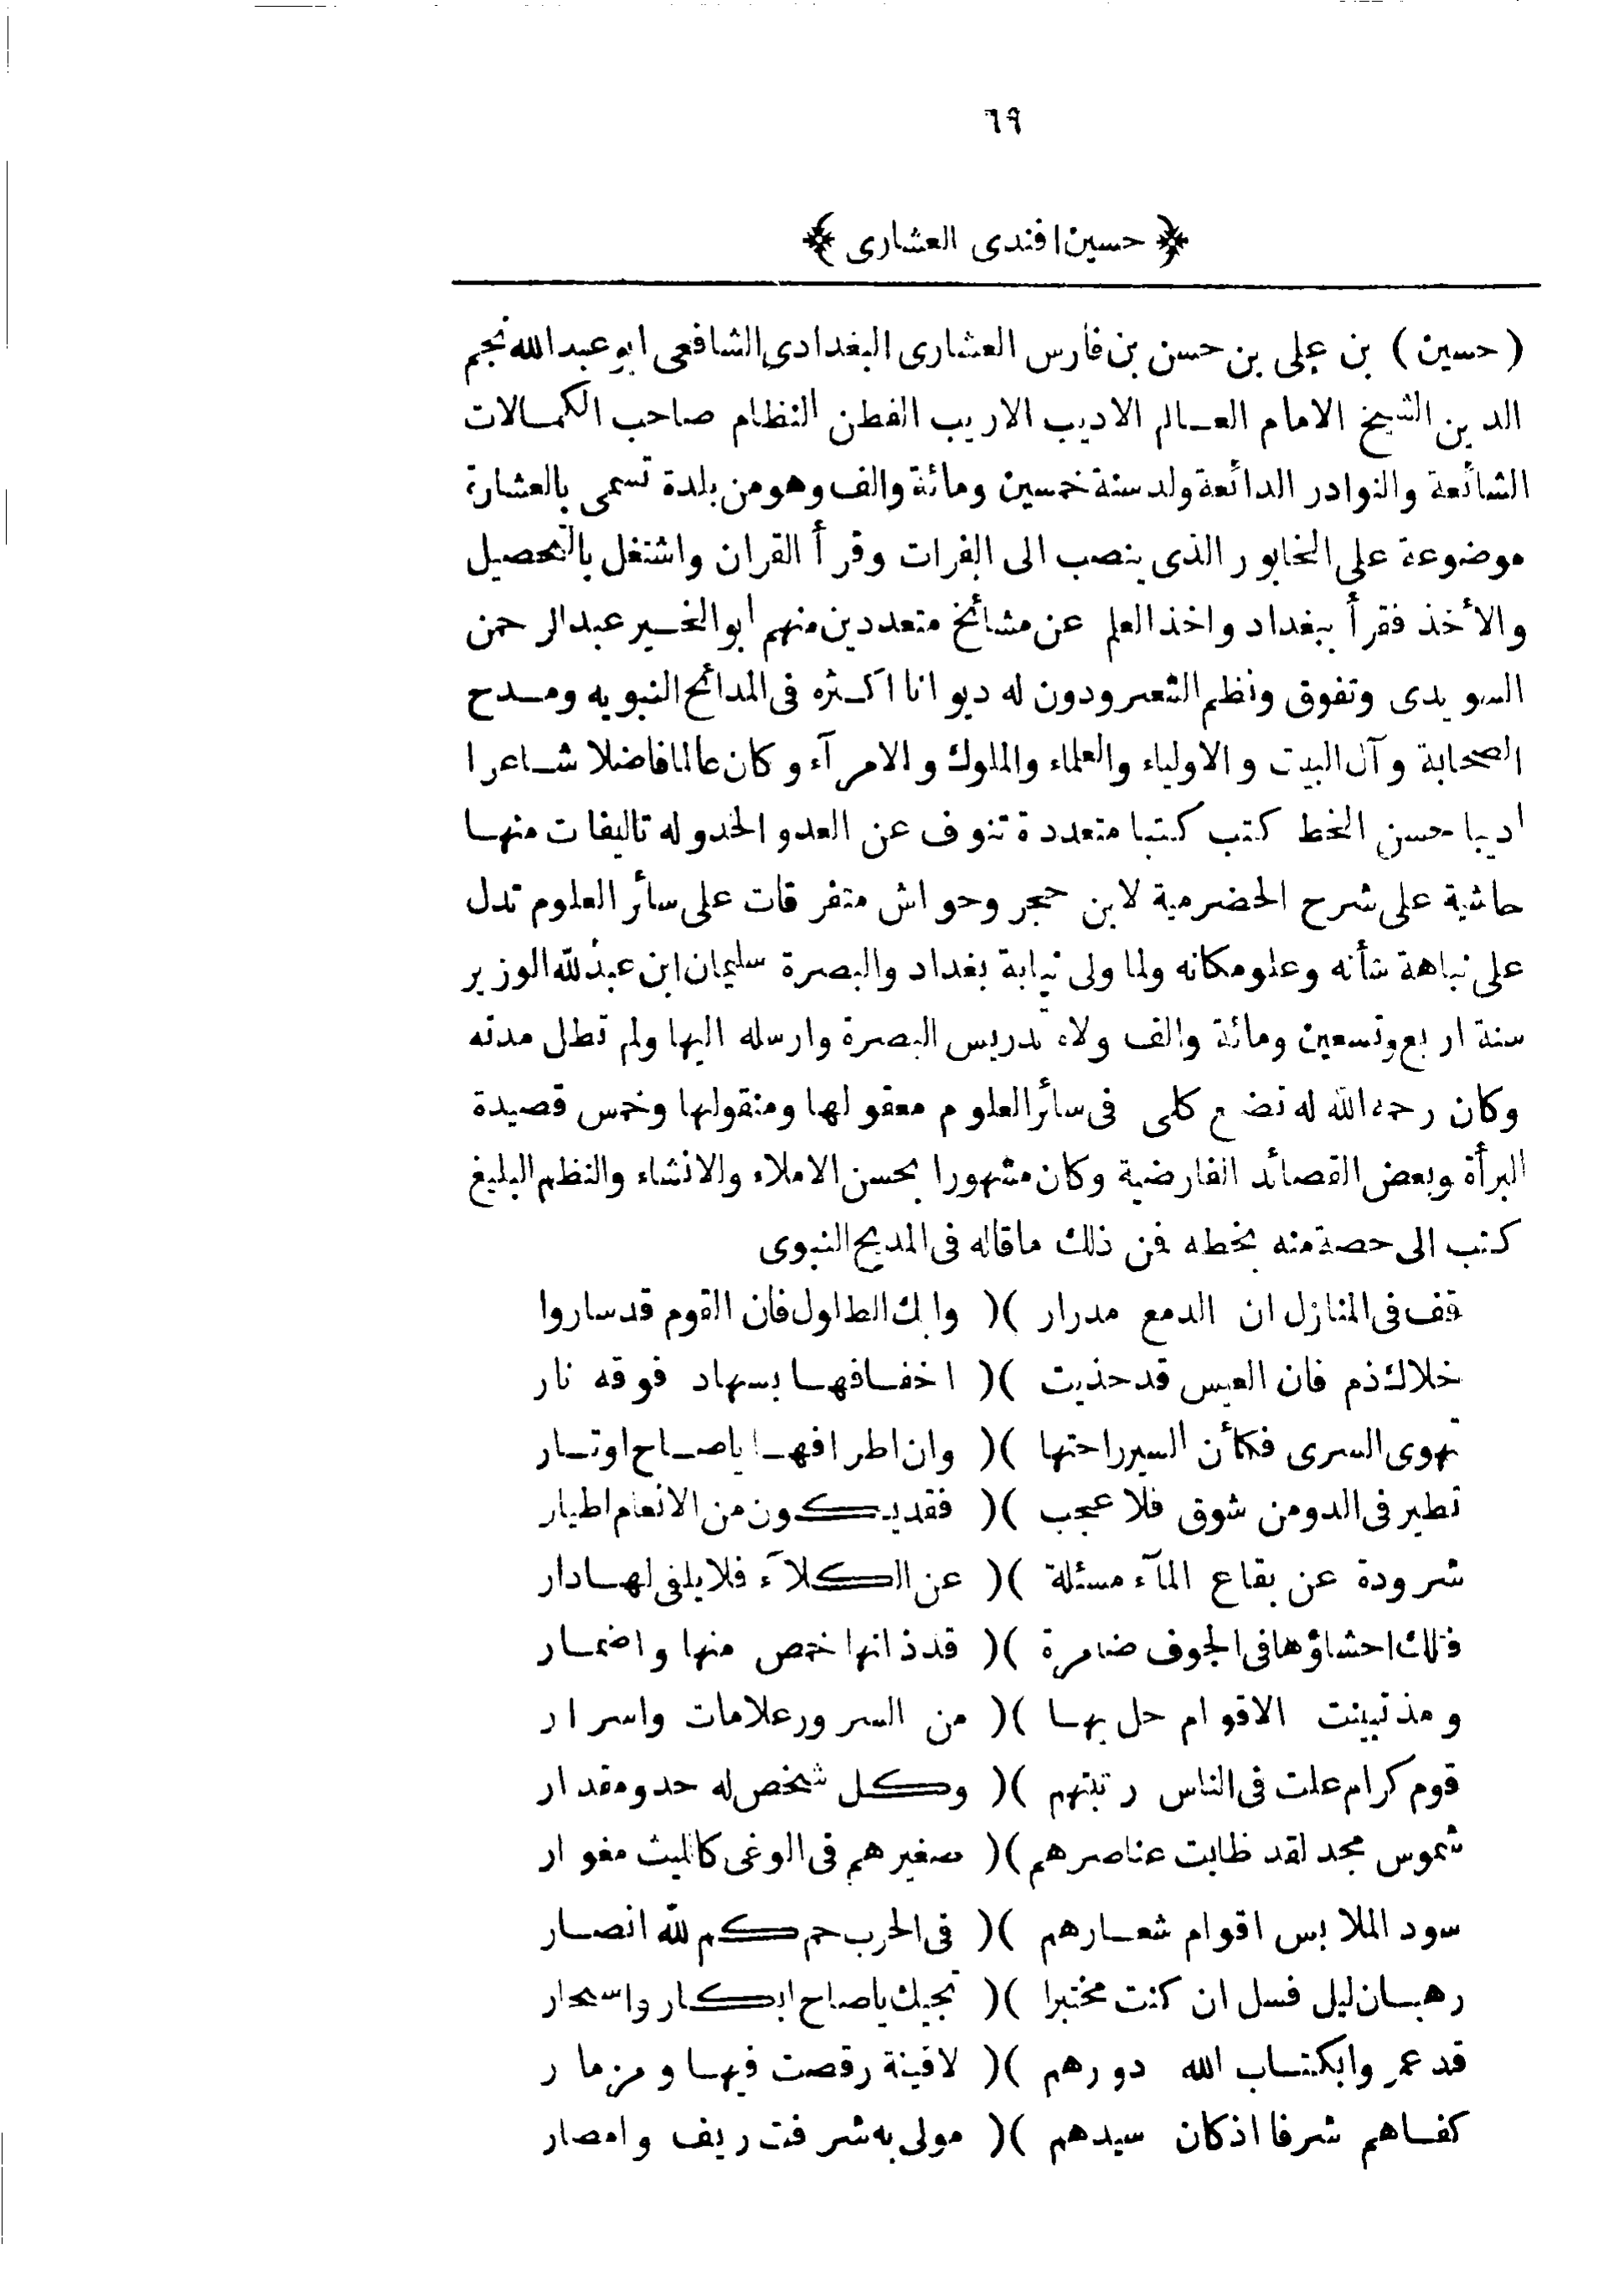 ٦٩
﴿ حسين افندى العشارى ﴾
( حسين ) بن على بن حسن بن فارس العشارى البغدادى الشافعى ابو عبد الله نجم
الدين الشيخ الامام العـالم الاديب الاريب الفطن النظام صاحب الكمـالات
الشائعة والنوادر الذائعة ولد سنة خمسين ومائة والف وهو من بلدة تسمى بالعشارة
موضوعة على الخابور الذى ينصب الى الفرات وقرأ القران واشتغل بالتحصيل
والأخذ فقرأ ببغداد واخذ العلم عن مشائخ متعددين منهم ابو الخـير عبد الرحمن
السويدى وتفوق ونظم الشعر ودون له ديوانا اكـثره فى المدائح النبويه ومـدح
الصحابة وآل البيت والاولياء والعلماء والملوك والامرآء وكان عالما فاضلا شـاعرا
اديبا حسن الخط كتب كتبا متعددة تنوف عن العدو الحد وله تاليفات منهـا
حاشية على شرح الحضرمية لابن حجر وحواش متفرقات على سائر العلوم تدل
على نباهة شأنه وعلو مكانه ولما ولى نيابة بغداد والبصرة سليمان ابن عبد الله الوزير
سنة اربع وتسعين ومائة والف ولاه تدريس البصرة وارسله اليها ولم تطل مدته
وكان رحمه الله له تضلع كلى فى سائر العلوم معقولها ومنقولها وخمس قصيدة
البرأة وبعض القصائد الفارضية وكان مشهورا بحسن الاملاء والانشاء والنظم البليغ
كتب الى حصة منه بخطه فمن ذلك ماقاله فى المديح النبوى
قف فى المنازل ان الدمع مدرار )( وابك الطلول فان القوم قد ساروا
خلاك ذم فان العيس قد حذيت )( اخفـافهـا بسهاد فوقه نار
تهوى السرى فكأن السير راحتها )( وان اطرافهـا ياصـاح اوتـار
تطير فى الدو من شوق فلا عجب )( فقد يـكون من الانعام اطيار
شرودة عن بقاع المآء مسئلة )( عن الكلآء فلا يلفى لهـا دار
فتلك احشاؤها فى الجوف ضامرة )( قد ذانها خمص منها واضمـار
ومذ تبينت الاقوام حل بهـا )( من السرور علامات واسرار
قوم كرام علت فى الناس رتبتهم )( وكـل شخص له حد ومقدار
شموس مجد لقد طابت عناصرهم )( صغيرهم فى الوغى كالليث مغوار
سود الملابس اقوام شعـارهم )( فى الحرب حم كم لله انصـار
رهبـان ليل فسل ان كنت مختبرا )( تجيبك ياصاح ابكـار واسحار
قد عمروا بكتـاب الله دورهم )( لاقينة رقصت فيهـا ومزمار
كفـاهم شرفا اذ كان سيدهم )( مولى به شرفت ريف وامصار